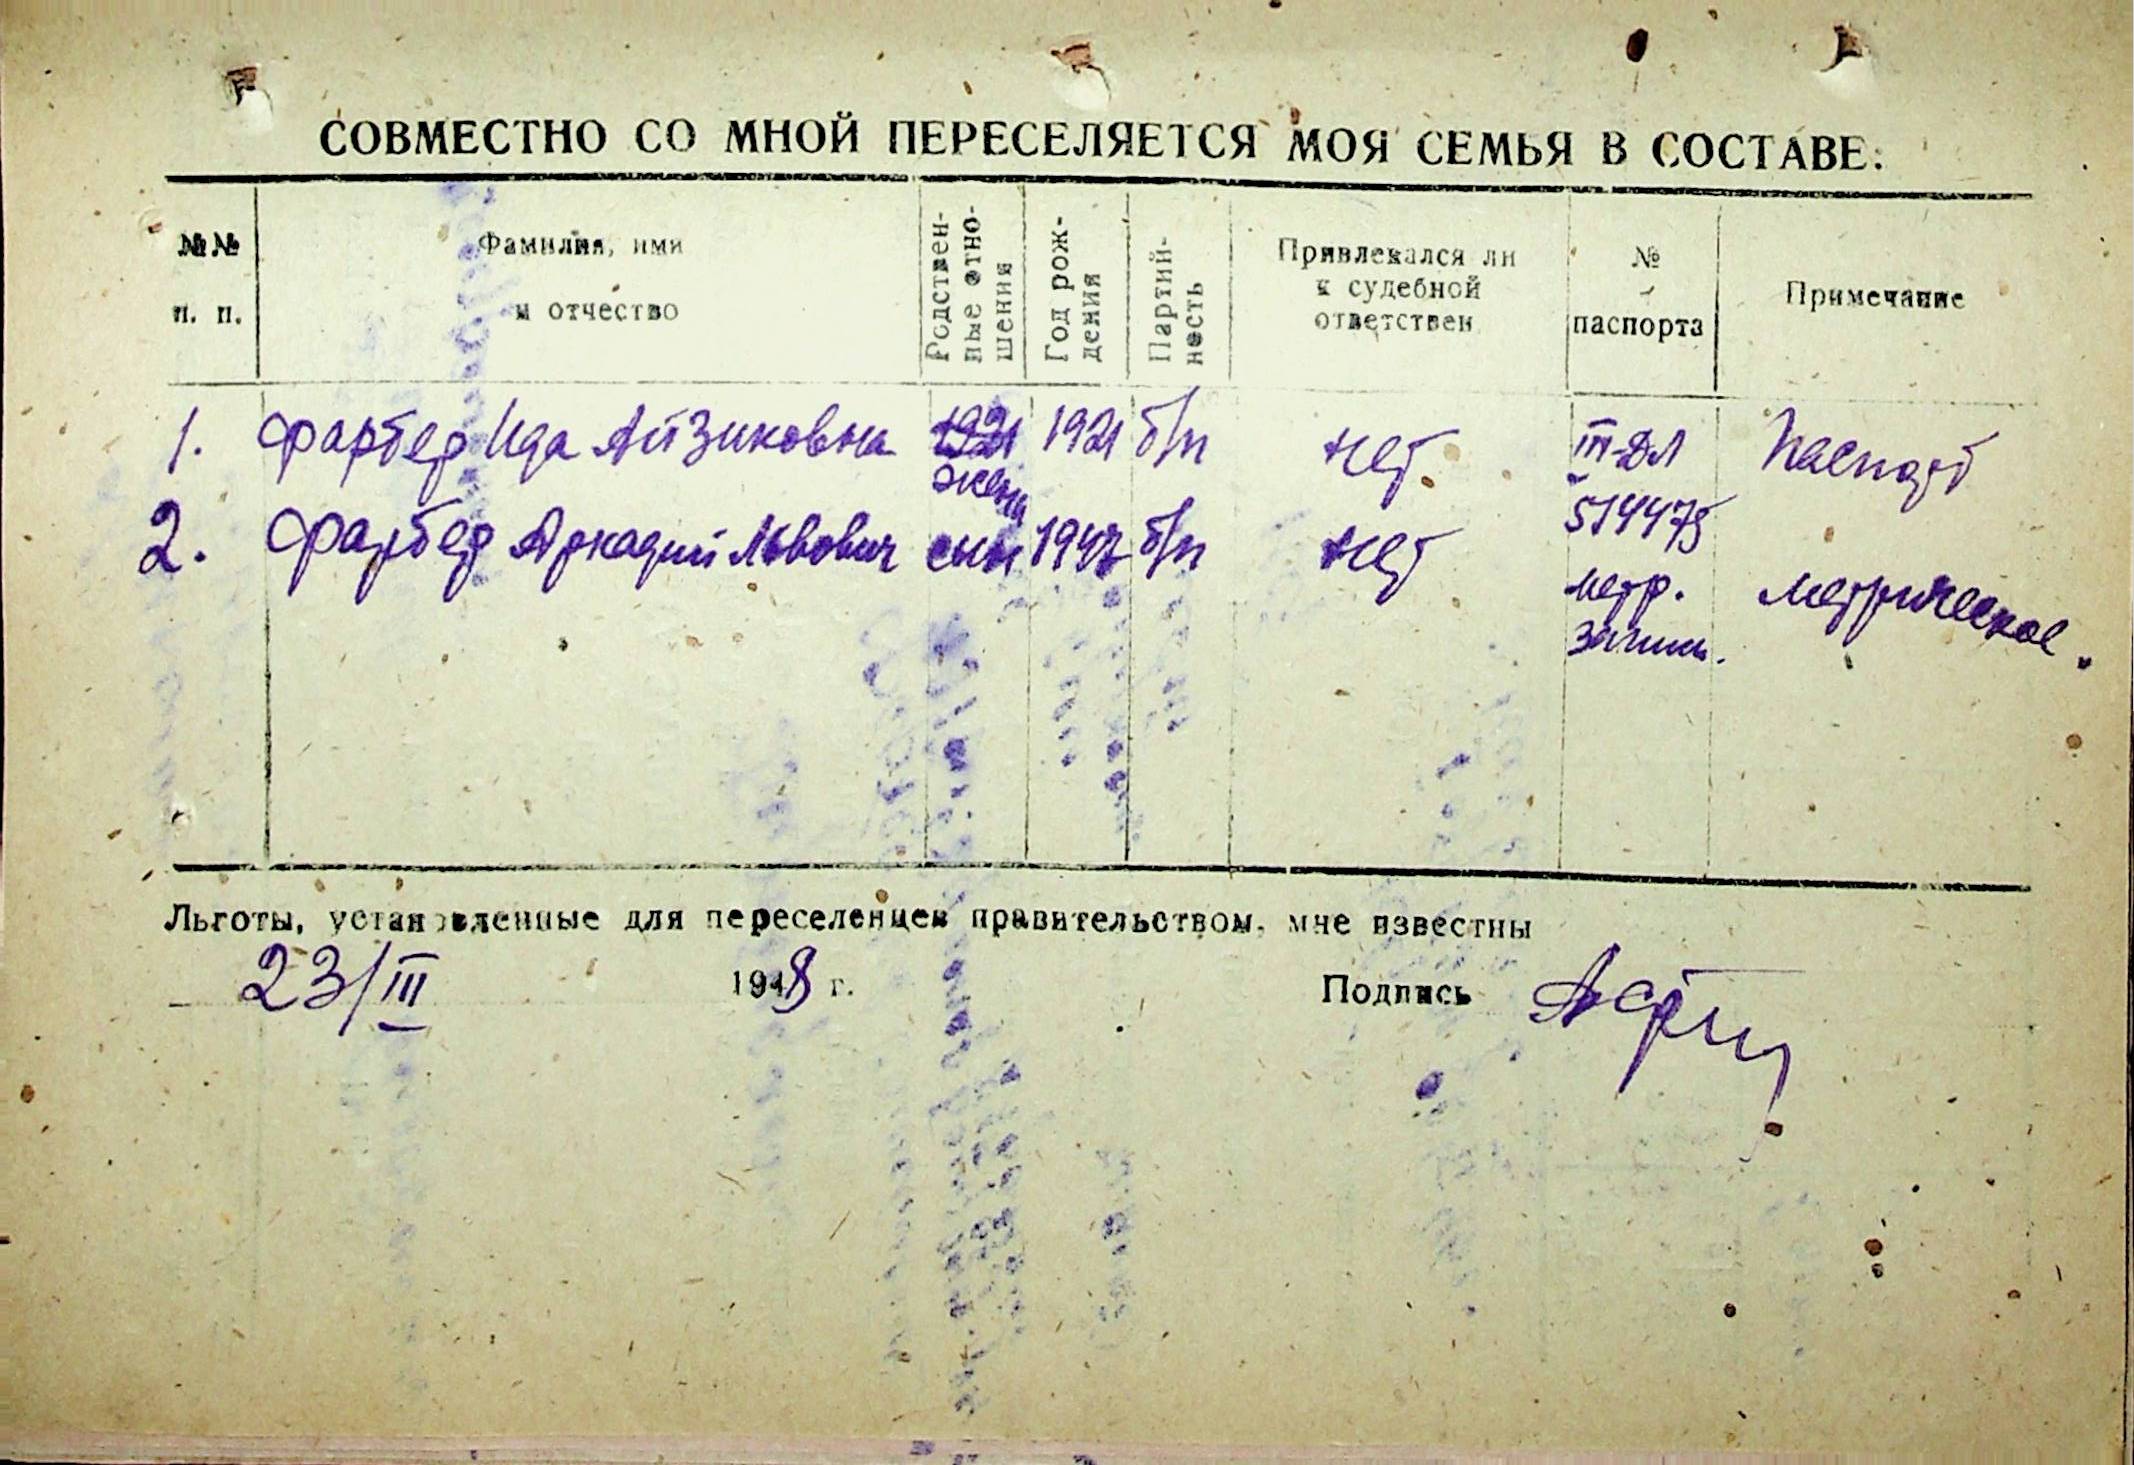 СОВМЕСТНО СО МНОЙ ПЕРЕСЕЛЯЕТСЯ МОЯ СЕМЬЯ В СОСТАВЕ:
№№ п. п.
Фамилия, имя и отчество
Родствен-ные отно-шения
Год рож-дения
Партий-ность
Привлекался ли к судебной ответствен
№ паспорта
Примечание
1. Фарбер Ида Айзиковна 1921 жена 1921 б/п нет III-ДЛ 514475 Паспорт
2. Фарбер Аркадий Львович сын 1947 б/п нет метр. запись. метрическое.
Льготы, установленные для переселенцев правительством, мне известны
23/III 1948 г. Подпись